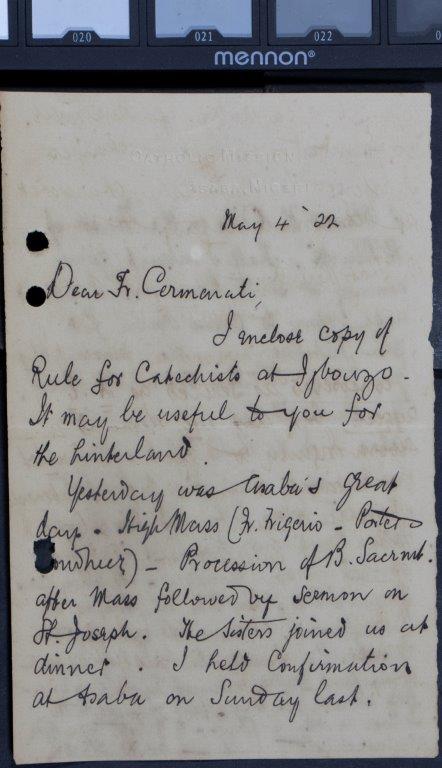 020 021 022
mennon®
CATHOLIC MISSION
ASABA, NIGERIA
May 4 '22
Dear Fr. Cermenati,
I enclose copy of
Rule for Catechists at Igbouzo.
It may be useful to you for
the hinterland.
Yesterday was Asaba's great
day. High Mass (Fr. Frigerio -
) - Procession of B. Sacrmt.
after Mass followed by sermon on
St. Joseph. The Sisters joined us at
dinner. I held Confirmation
at Asaba on Sunday last.